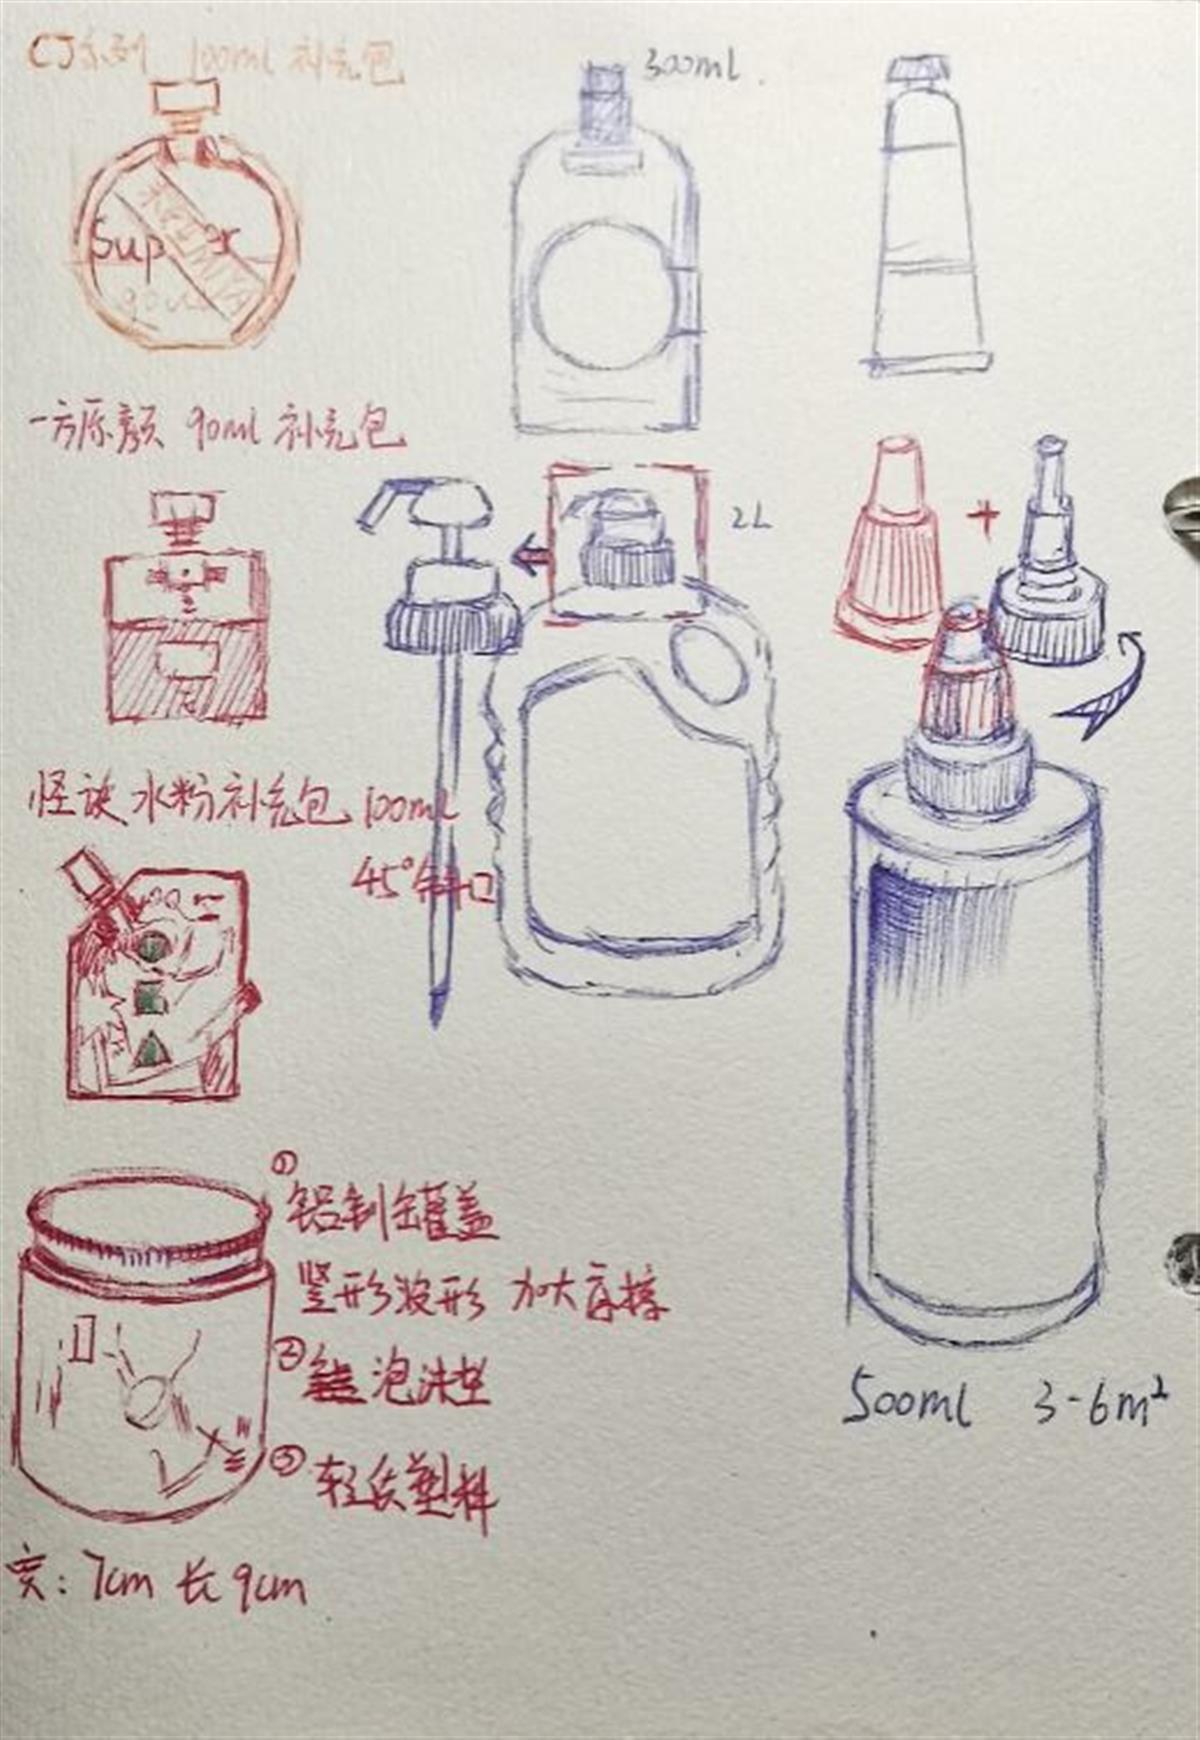 CJ系列 100ml 补充包
300ml
Super
gouache
一方原颜 90ml 补充包
2L
+
怪诀水粉补充包 100ml
45°斜口
①
铝制罐盖
竖形波形 加大摩擦
② 泡沫垫
③ 轻质塑料
500ml 3-6m²
宽: 7cm 长 9cm